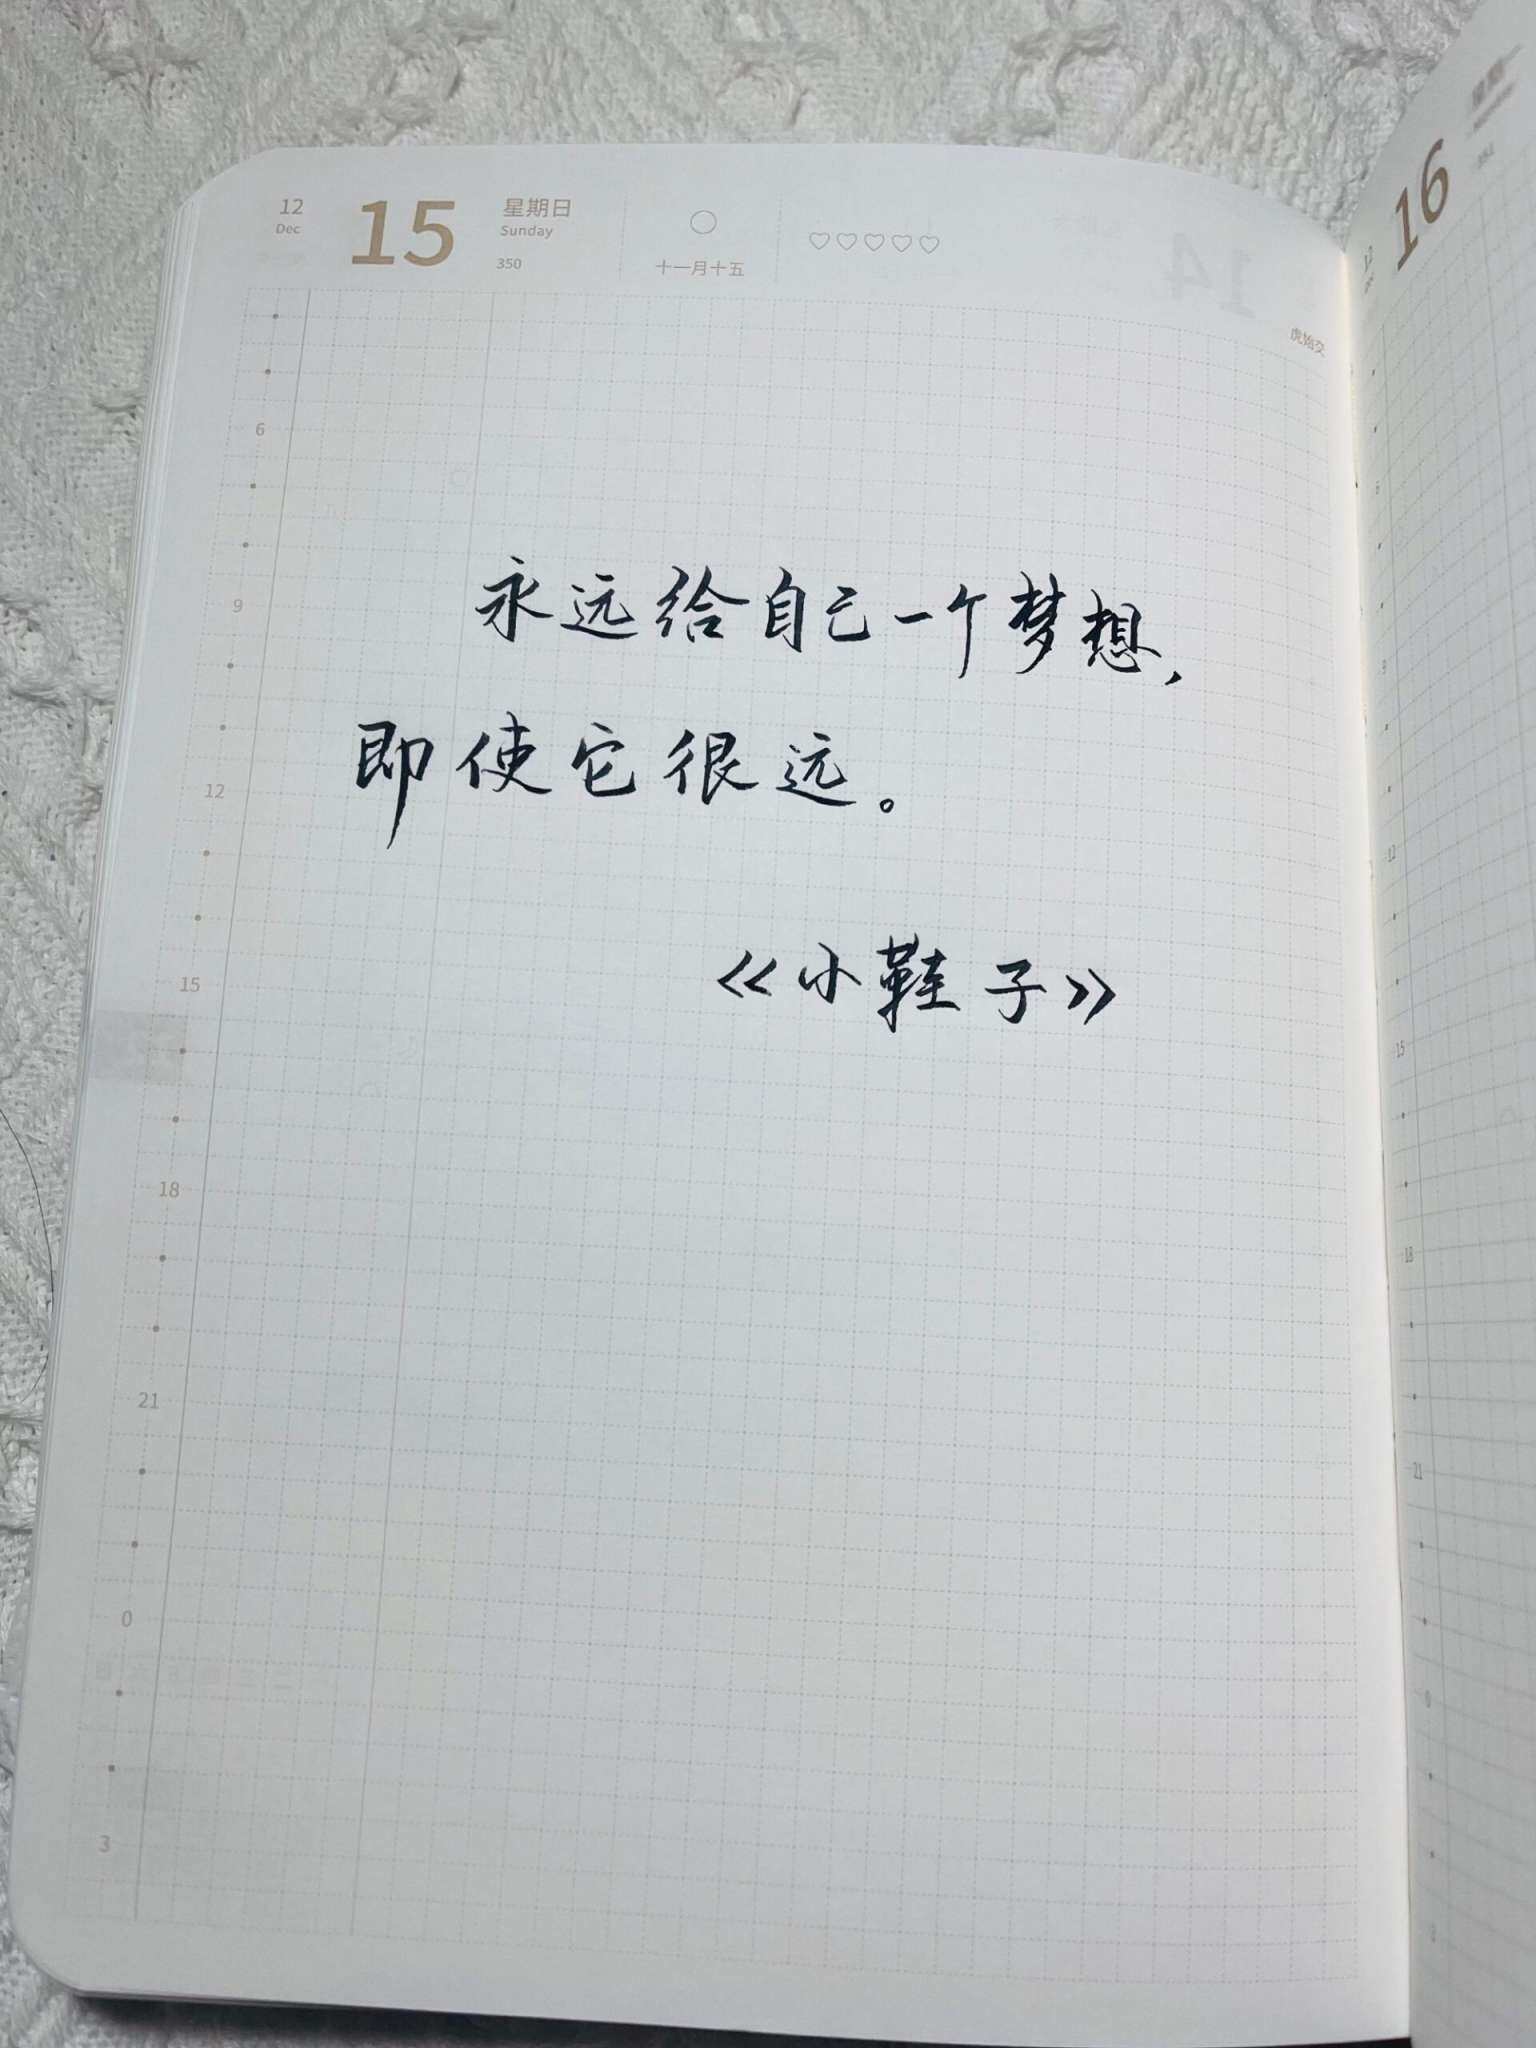 12 15 星期日
Dec Sunday
350
十一月十五
虎始交
永远给自己一个梦想,
即使它很远。
《小鞋子》
6
9
12
15
18
21
0
3
16
12
6
9
12
15
18
21
0